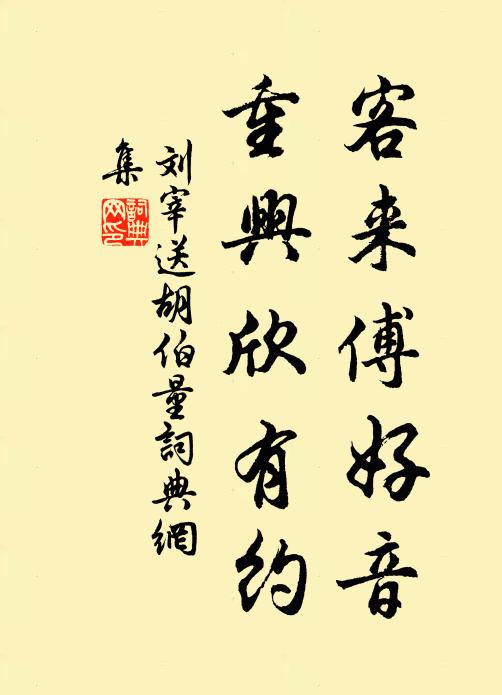 客来傅好音
重興欣有约
刘宰送胡伯量詞典網
集
詞典网印